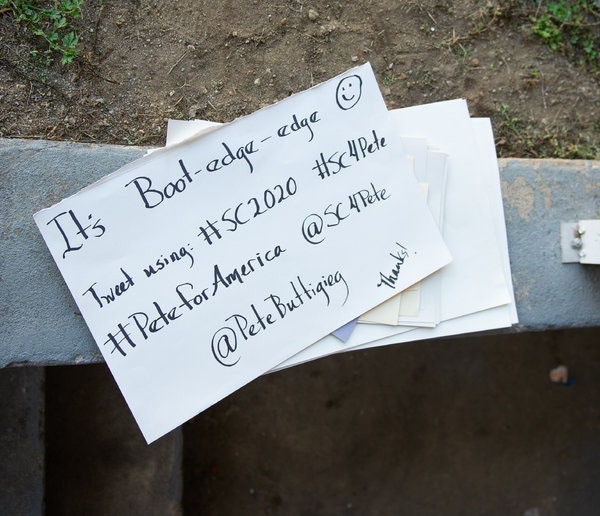 It's Boot-edge-edge
Tweet using: #SC2020 #SC4Pete
#PeteForAmerica @SC4Pete
@PeteButtigieg Thanks!